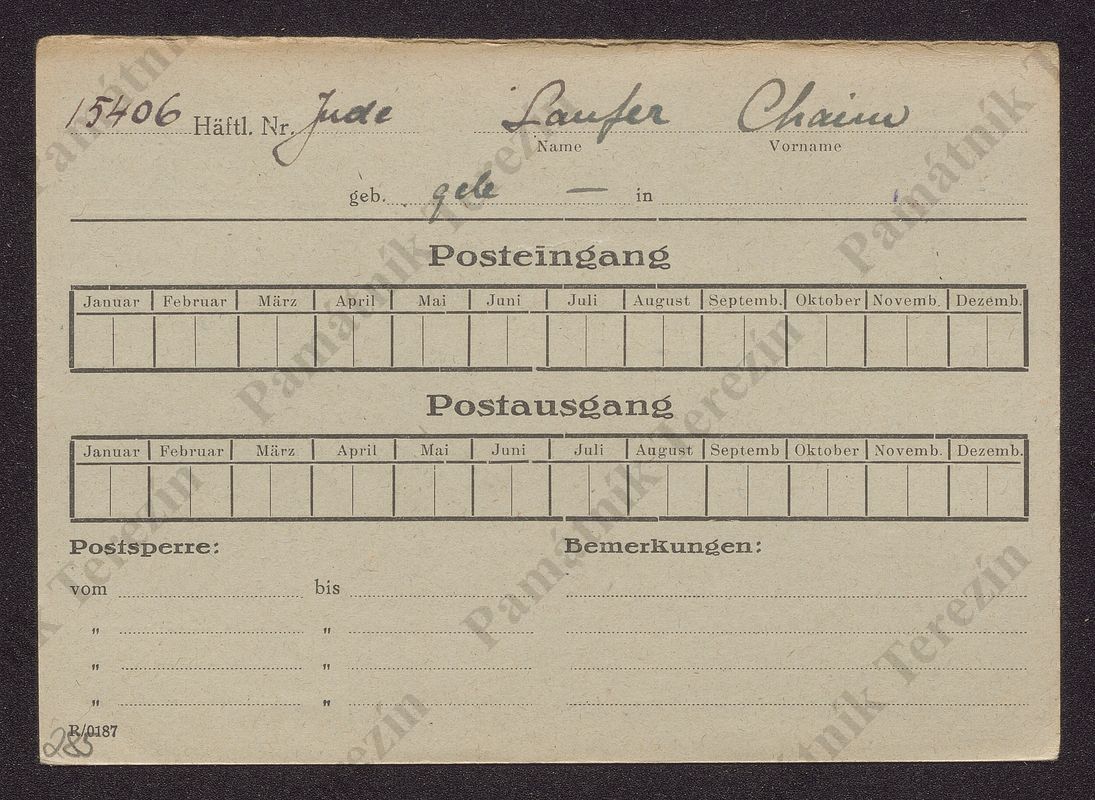 15406 Häftl. Nr. Jude Laufer Chaim
Name Vorname
geb. gele — in
Posteingang
Januar Februar März April Mai Juni Juli August Septemb. Oktober Novemb. Dezemb.
Postausgang
Januar Februar März April Mai Juni Juli August Septemb Oktober Novemb. Dezemb.
Postsperre: Bemerkungen:
vom bis
" "
" "
" "
R/0187
285
Památník Terezín